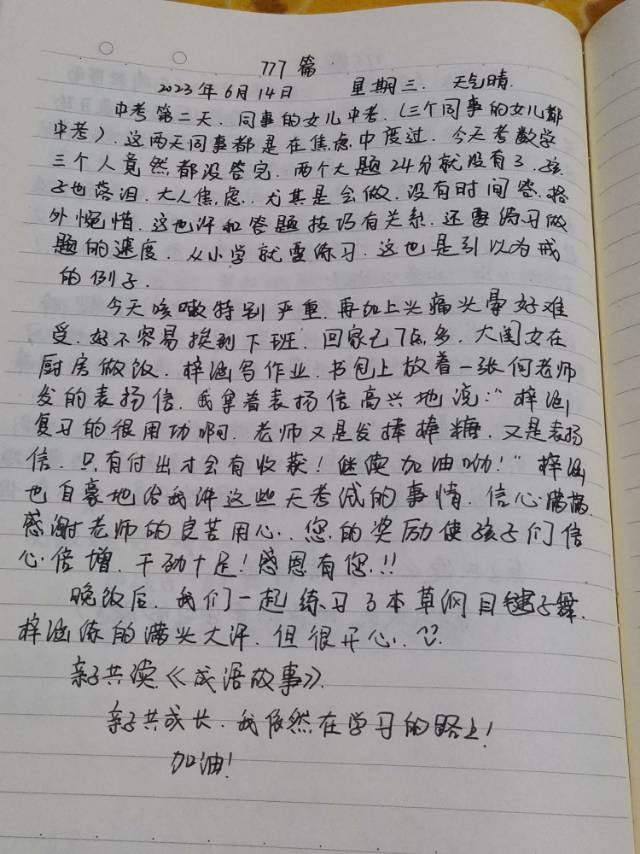 777篇
2023年6月14日 星期三. 天气晴.
中考第二天. 同事的女儿中考. (三个同事的女儿都
中考). 这两天同事都是在焦虑中度过. 今天考数学
三个人竟然都没答完. 两个大题24分就没有了. 孩
子也落泪. 大人焦虑. 尤其是会做. 没有时间答. 格
外惋惜. 这也许和答题技巧有关系. 还要练习做
题的速度. 从小学就要练习. 这也是引以为戒
的例子.
今天咳嗽特别严重. 再加上头痛头晕好难
受. 好不容易挨到下班. 回家已7点多. 大闺女在
厨房做饭. 梓涵写作业. 书包上放着一张何老师
发的表扬信. 我拿着表扬信高兴地说:“梓涵
复习的很用功啊. 老师又是发棒棒糖. 又是表扬
信. 只有付出才会有收获! 继续加油呦!” 梓涵
也自豪地给我讲这些天考试的事情. 信心满满.
感谢老师的良苦用心. 您的奖励使孩子们信
心倍增. 干劲十足! 感恩有您.!!
晚饭后. 我们一起练习了本草纲目毽子舞.
梓涵练的满头大汗. 但很开心.
亲子共读《成语故事》.
亲子共成长. 我依然在学习的路上!
加油!